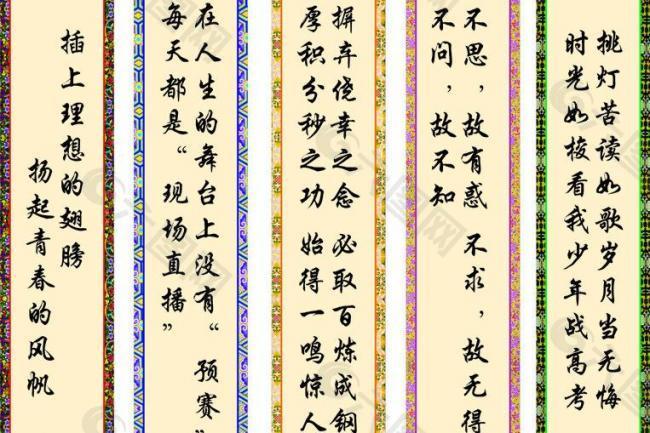 插上理想的翅膀
扬起青春的风帆
在人生的舞台上没有“预赛”
每天都是“现场直播”
摒弃绕幸之念 必取百炼成钢
厚积分秒之功 始得一鸣惊人
不思，故有惑 不求，故无得
不问，故不知
挑灯苦读如歌岁月当无悔
时光如梭看我少年战高考